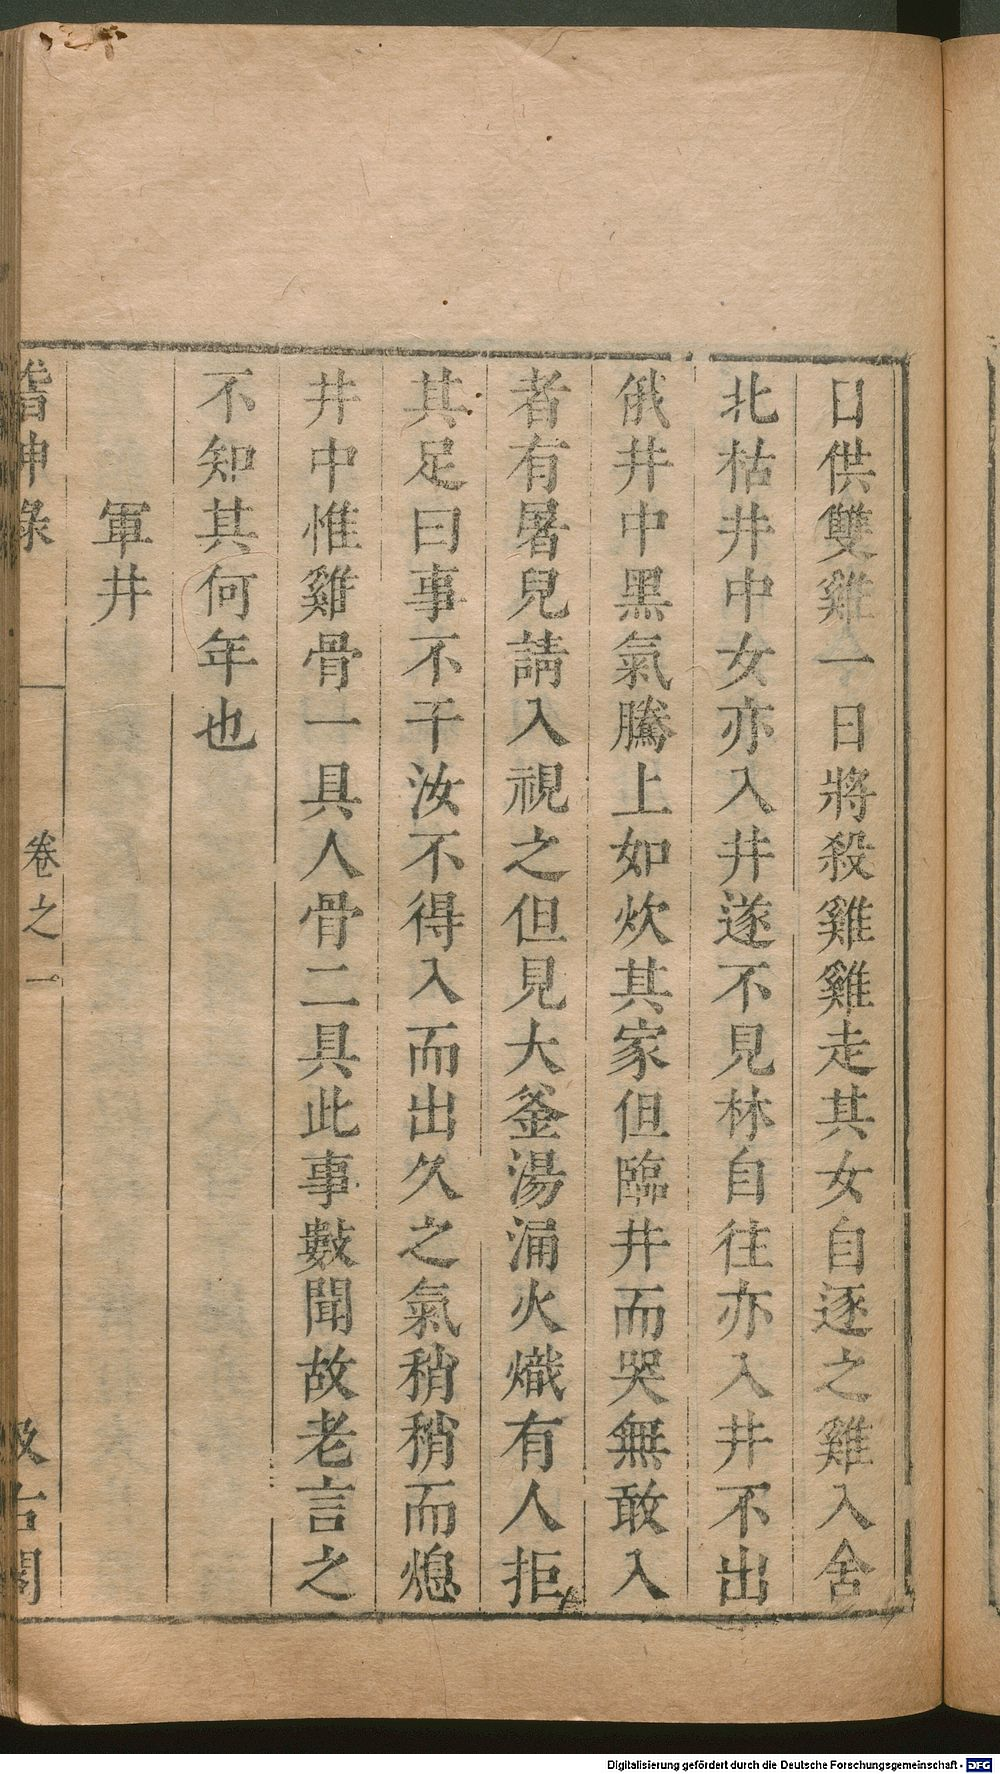 日供雙雞一日將殺雞雞走其女自逐之雞入舍
北枯井中女亦入井遂不見林自往亦入井不出
俄井中黑氣騰上如炊其家但臨井而哭無敢入
者有暑兒請入視之但見大釜湯涌火熾有人拒
其足曰事不干汝不得入而出久之氣稍稍而熄
井中惟雞骨一具人骨二具此事數聞故老言之
不知其何年也
軍井
稽神錄
卷之一
汲古閣
Digitalisierung gefördert durch die Deutsche Forschungsgemeinschaft - DFG